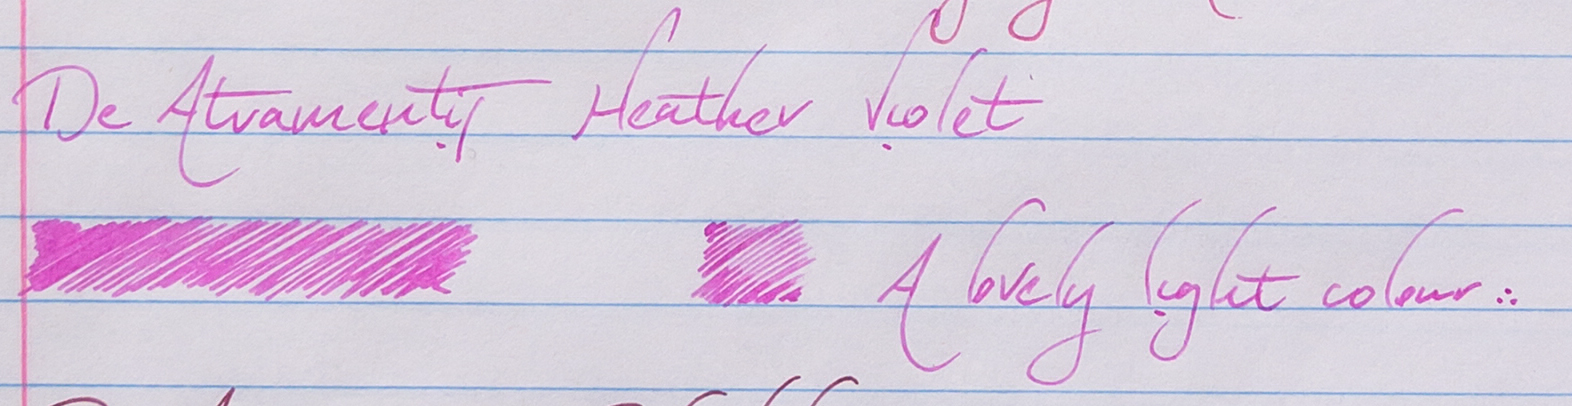 De Atramentis Heather Violet
A lovely light colour :.